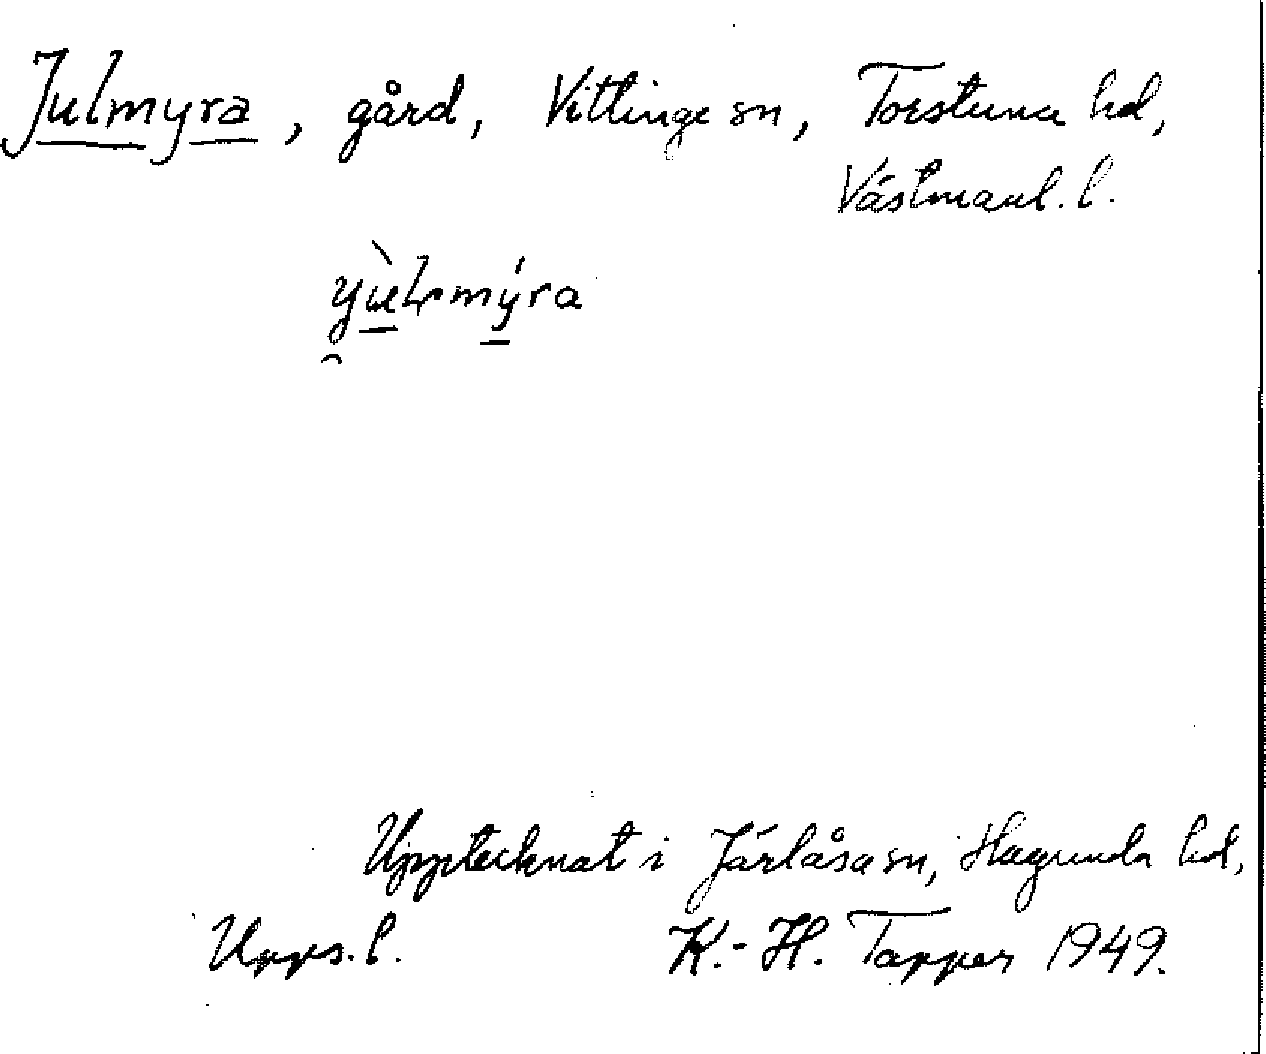 Julmyra, gård, Vittinge sn, Torstuna hd,
Västmanl. l.
Upptecknat i Järlåsa sn, Hagunda hd,
Upps. l. K.-H. Tapper 1949.